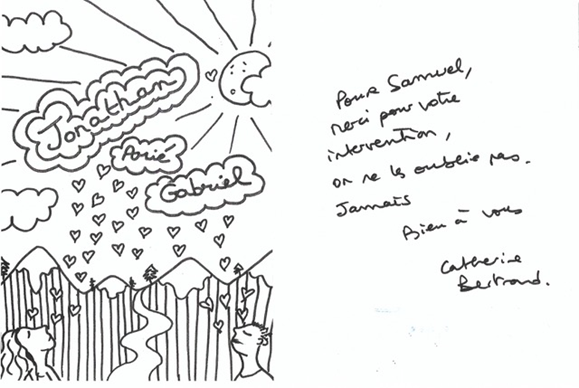 Jonathan
Arié
Gabriel
Pour Samuel,
merci pour votre
intervention,
on ne les oublie pas.
Jamais
Bien à vous
Catherine
Bertrand.